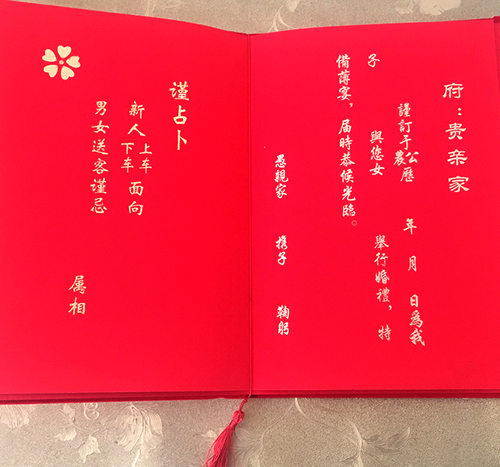 府：贵亲家
謹訂于公農歷 年 月 日為我
子 與您女 舉行婚禮，特
備薄宴，届時恭候光臨。
愚親家 携子 鞠躬
谨占卜
新人上车下车面向
男女送客谨忌 属相